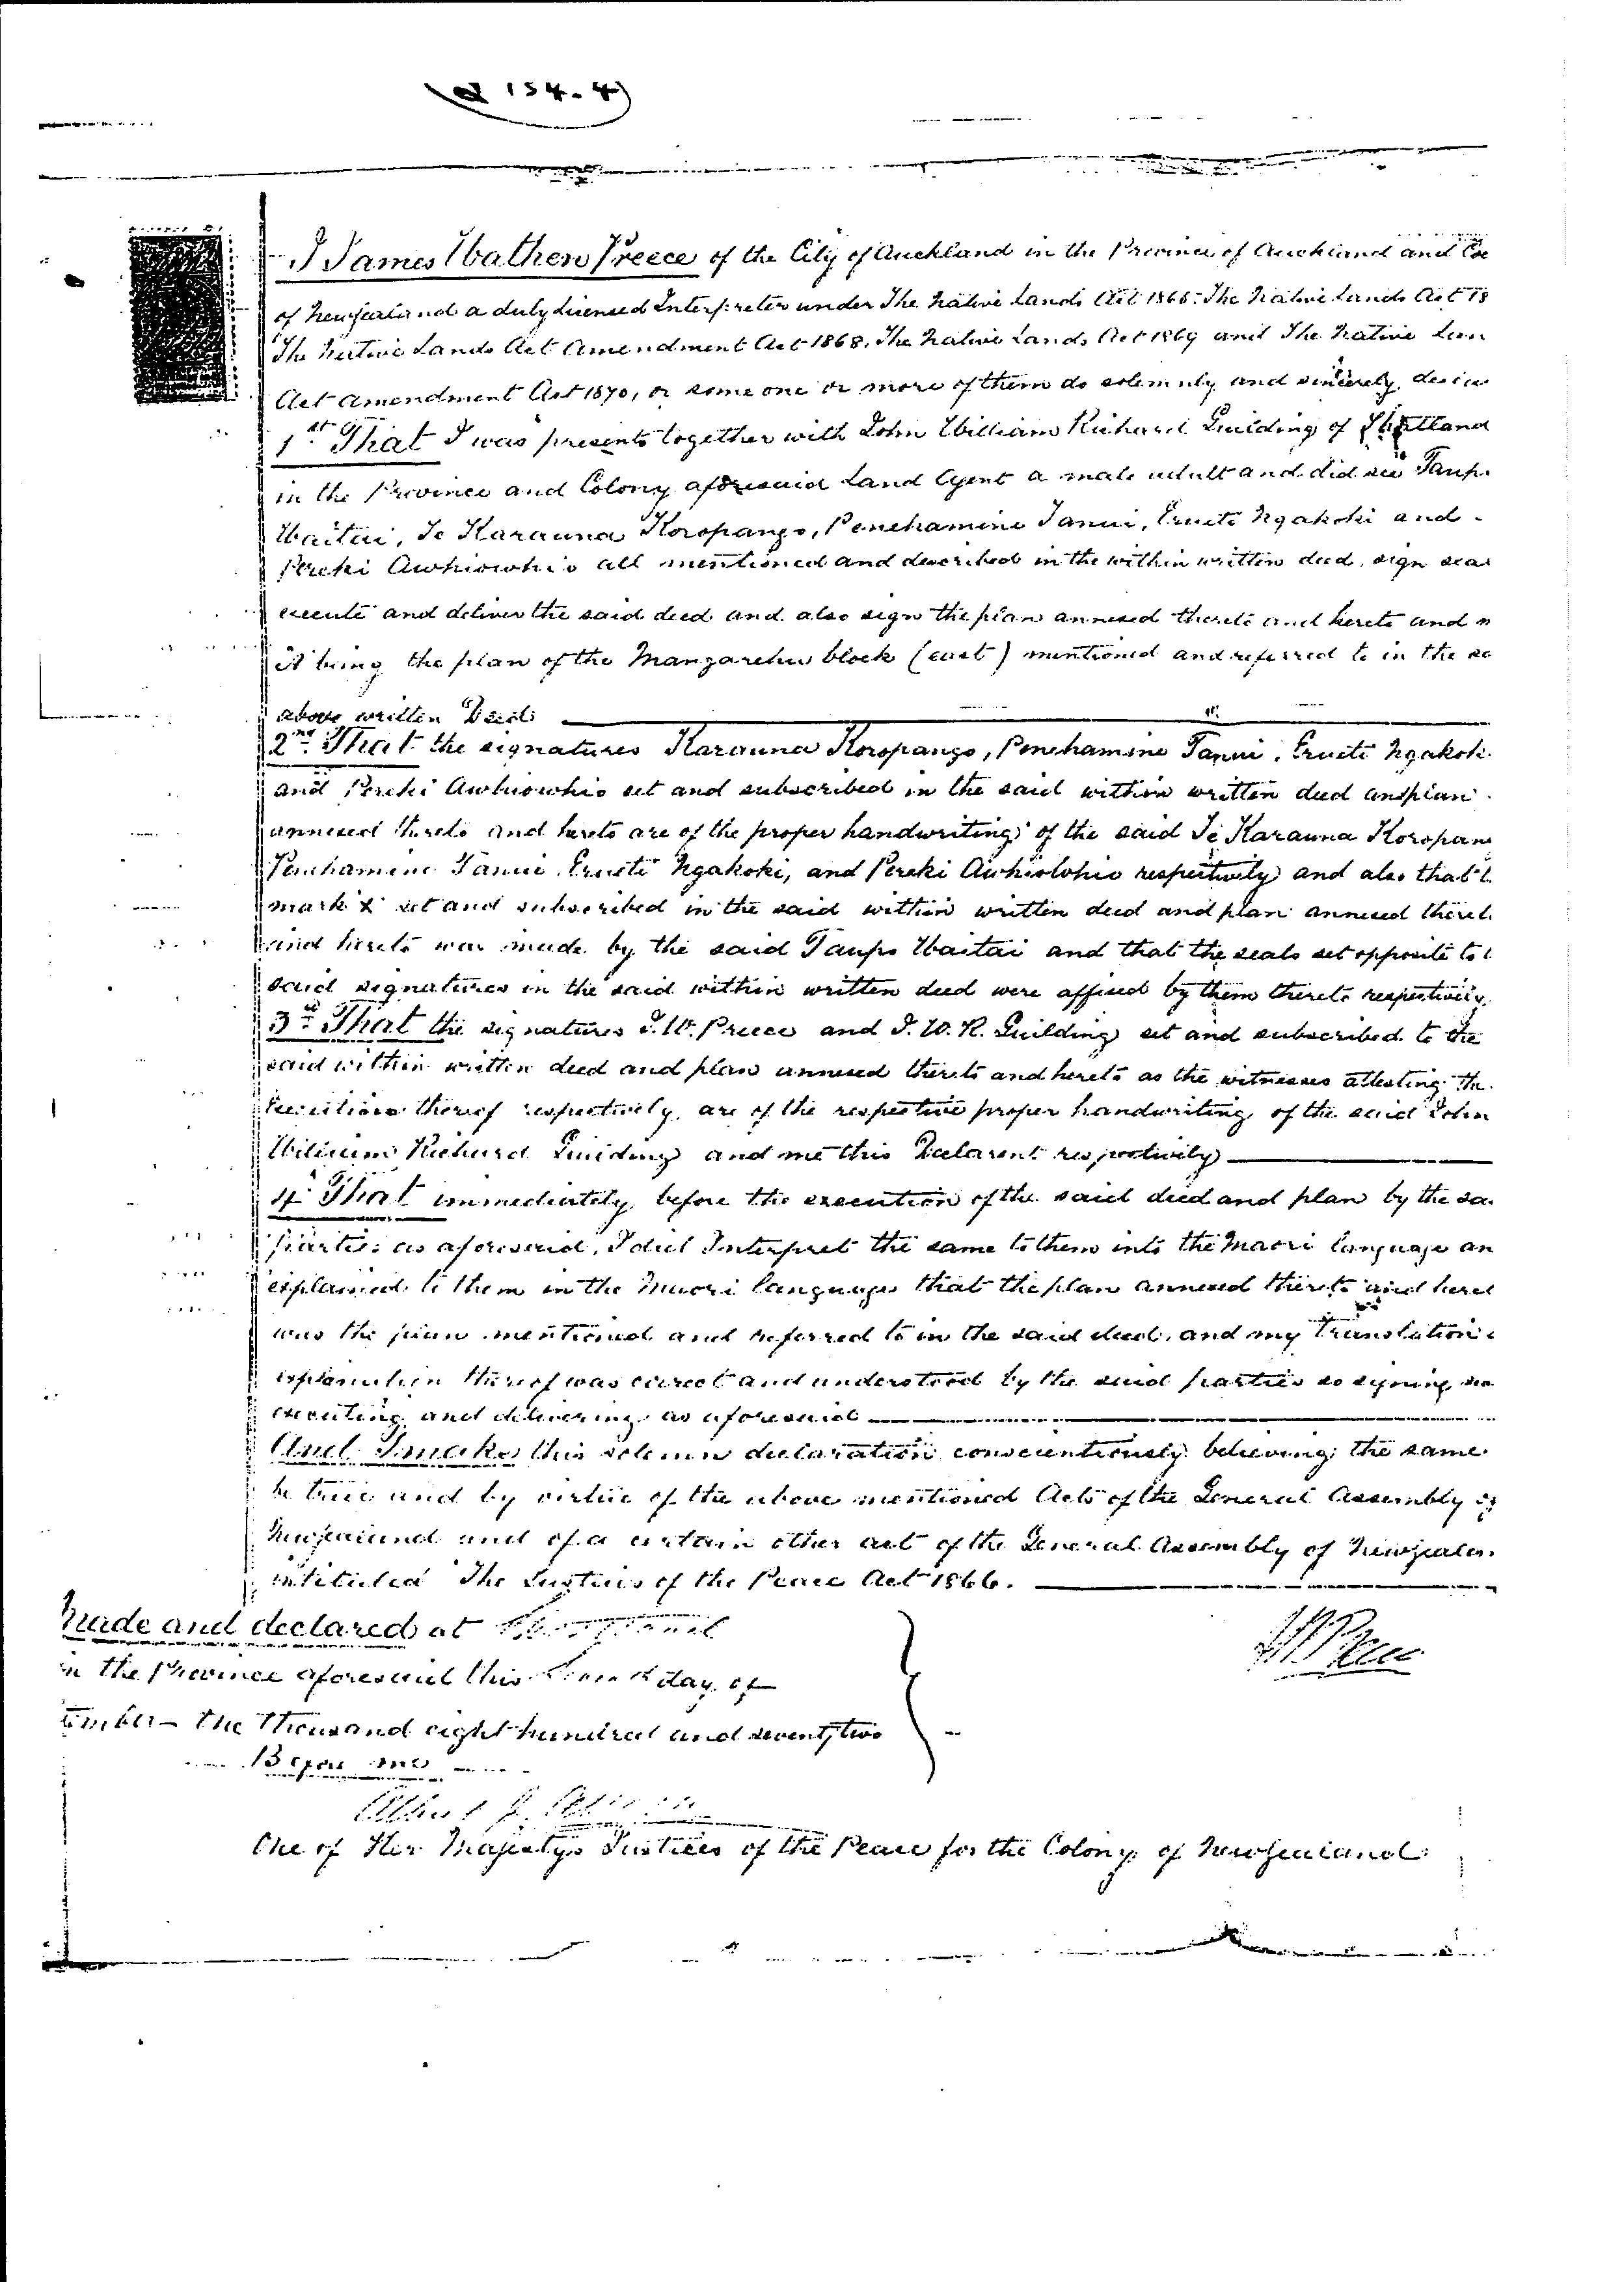 154.4
I James Wathen Preece of the City of Auckland in the Province of Auckland and Co
of Newzealand a duly licensed Interpreter under The Native Lands Act 1865. The Native Lands Act 18
The Native Lands Act Amendment Act 1868, The Native Lands Act 1869 and The Native Lan
Act Amendment Act 1870, or some one or more of them do solemnly and sincerely decla
1st That I was present together with John William Richard Guilding of Shortland
in the Province and Colony aforesaid Land Agent a male adult and did see Taupo
Waitai, Te Karauna Koropango, Penehamine Tanui, Erueti Ngakoki and
Pereki Awhiowhio all mentioned and described in the within written deed, sign sea
execute and deliver the said deed and also sign the plan annexed thereto and hereto and
it being the plan of the Mangarehu block (east) mentioned and referred to in the
above written Deed
2nd That the signatures Karauna Koropango, Penehamine Tanui, Erueti Ngakoki
and Pereki Awhiowhio set and subscribed in the said within written deed and plan
annexed thereto and hereto are of the proper handwriting of the said Te Karauna Koropan
Penehamine Tanui Erueti Ngakoki, and Pereki Awhiowhio respectively and also that t
mark X set and subscribed in the said within written deed and plan annexed theret
and hereto was made by the said Taupo Waitai and that the seals set opposite to t
said signatures in the said within written deed were affixed by them thereto respectively
3rd That the signatures J. W. Preece and J. W. R. Guilding set and subscribed to the
said within written deed and plan annexed thereto and hereto as the witnesses attesting the
execution thereof respectively are of the respective proper handwriting of the said John
William Richard Guilding and me this Declarant respectively
4th That immediately before the execution of the said deed and plan by the sa
parties as aforesaid, I did Interpret the same to them into the Maori language an
explained to them in the Maori language that the plan annexed thereto and heret
was the plan mentioned and referred to in the said deed, and my translation
explanation thereof was correct and understood by the said parties so signing sea
executing and delivering as aforesaid
And I make this solemn declaration conscientiously believing the same
be true and by virtue of the above mentioned Acts of the General Assembly of
Newzealand and of a certain other act of the General Assembly of Newzealan
intituled The Justices of the Peace Act 1866.
Made and declared at
in the Province aforesaid this day of
ember The Thousand eight hundred and seventy two
Before me
J W Preece
Albert J.
One of Her Majestys Justices of the Peace for the Colony of Newzealand